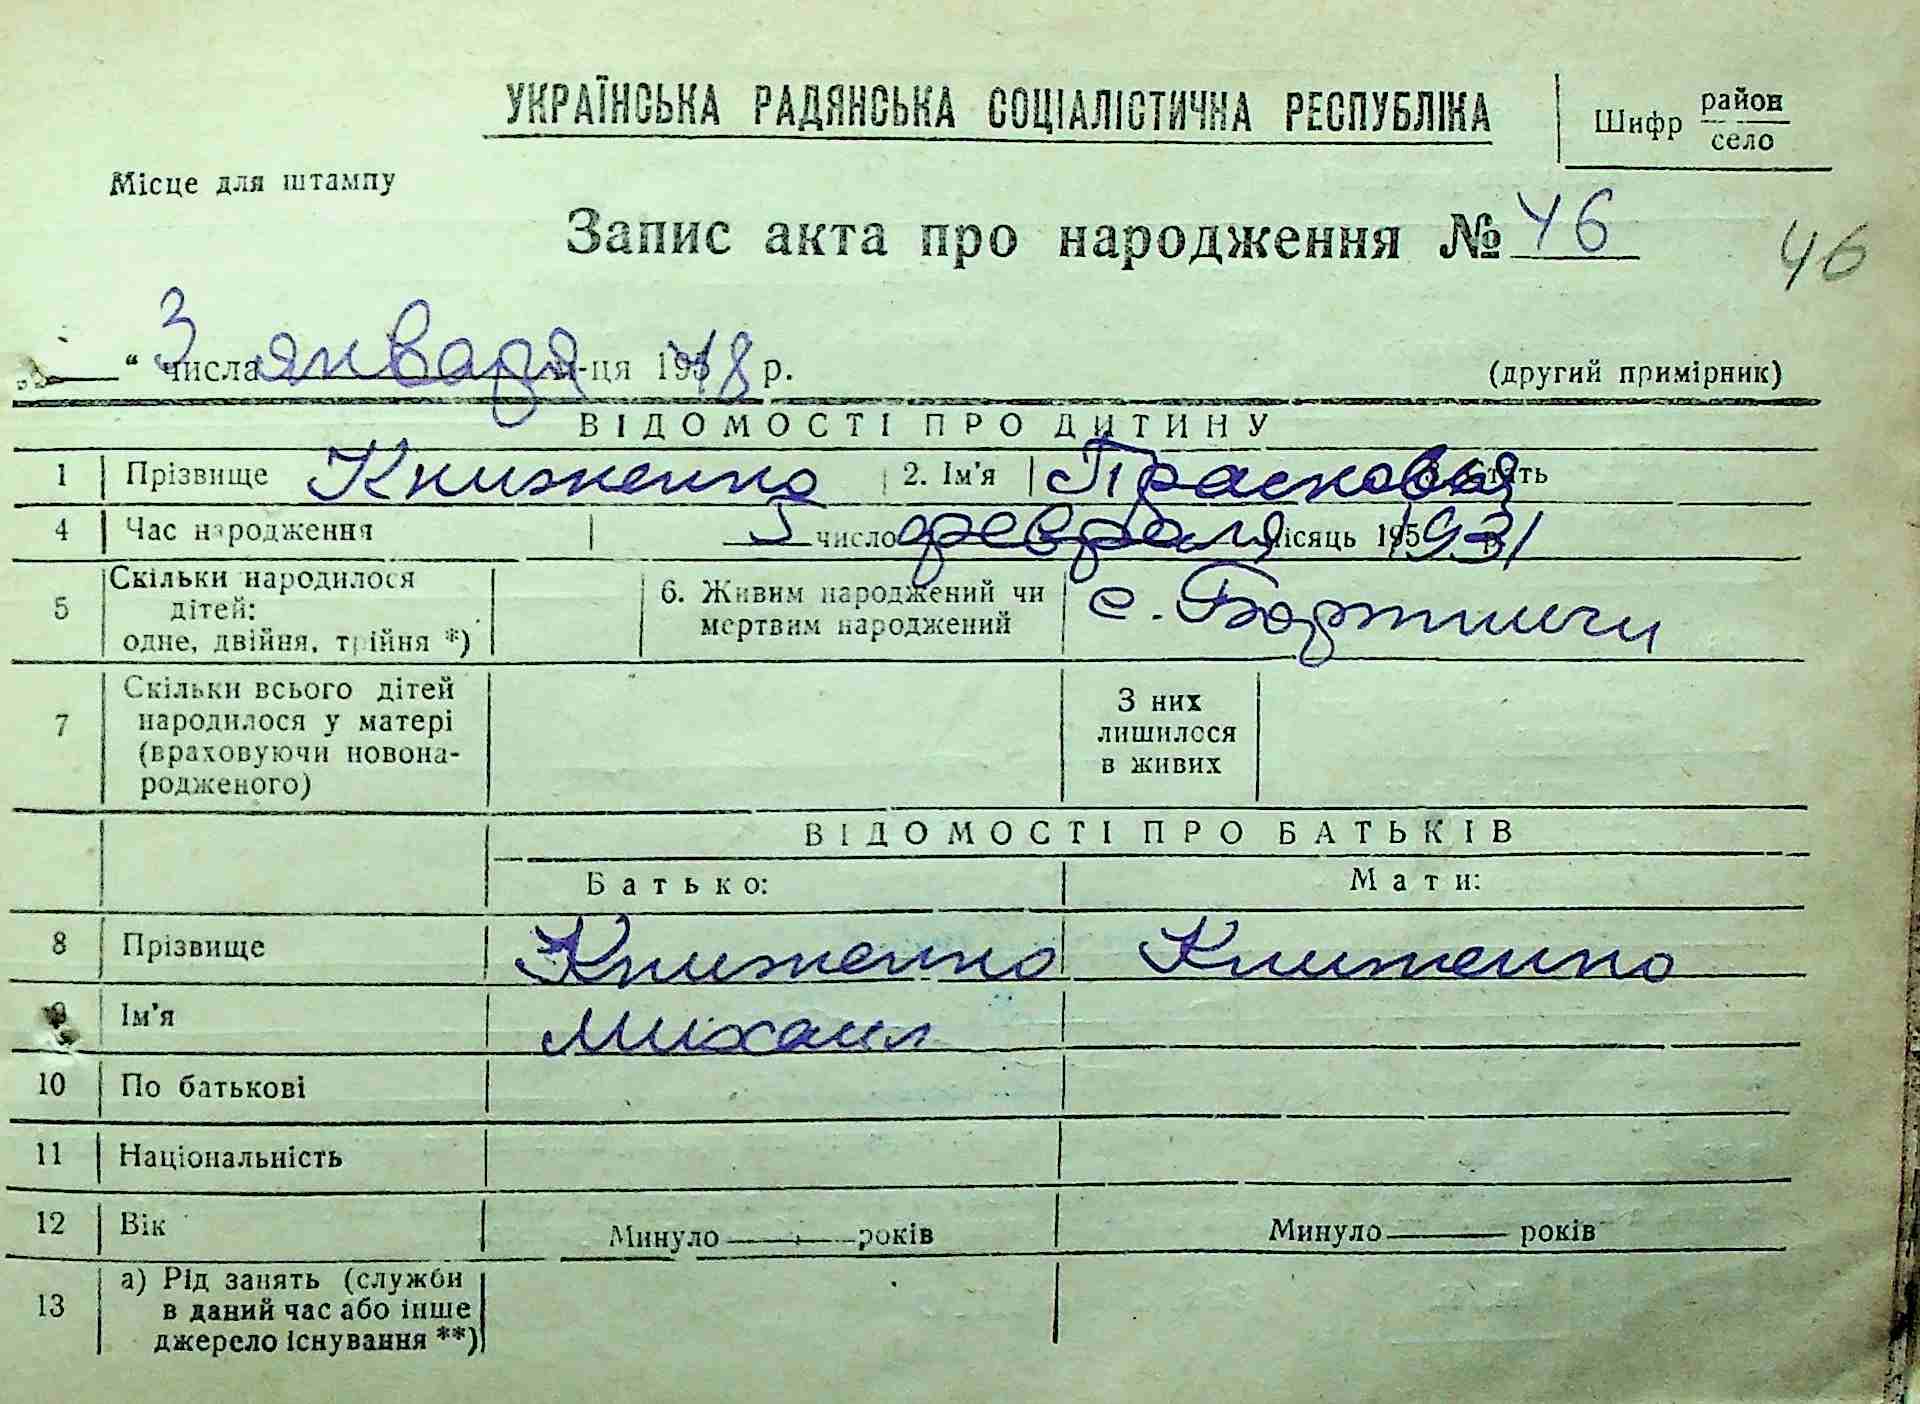 УКРАЇНСЬКА РАДЯНСЬКА СОЦІАЛІСТИЧНА РЕСПУБЛІКА
Шифр район
село
Місце для штампу
Запис акта про народження № 46
46
" 3 числа января м-ця 1948 р.
(другий примірник)
ВІДОМОСТІ ПРО ДИТИНУ
1 Прізвище Книженко 2. Ім'я Прасковья 3. Стать
4 Час народження 5 число февраля місяць 1931 р.
5 Скільки народилося
дітей:
одне, двійня, трійня *)
6. Живим народжений чи
мертвим народжений
с. Бортничи
7 Скільки всього дітей
народилося у матері
(враховуючи новона-
родженого)
З них
лишилося
в живих
ВІДОМОСТІ ПРО БАТЬКІВ
Батько: Мати:
8 Прізвище Книженко Книженко
9 Ім'я Михаил
10 По батькові
11 Національність
12 Вік Минуло років Минуло років
13 а) Рід занять (служби
в даний час або інше
джерело існування **)